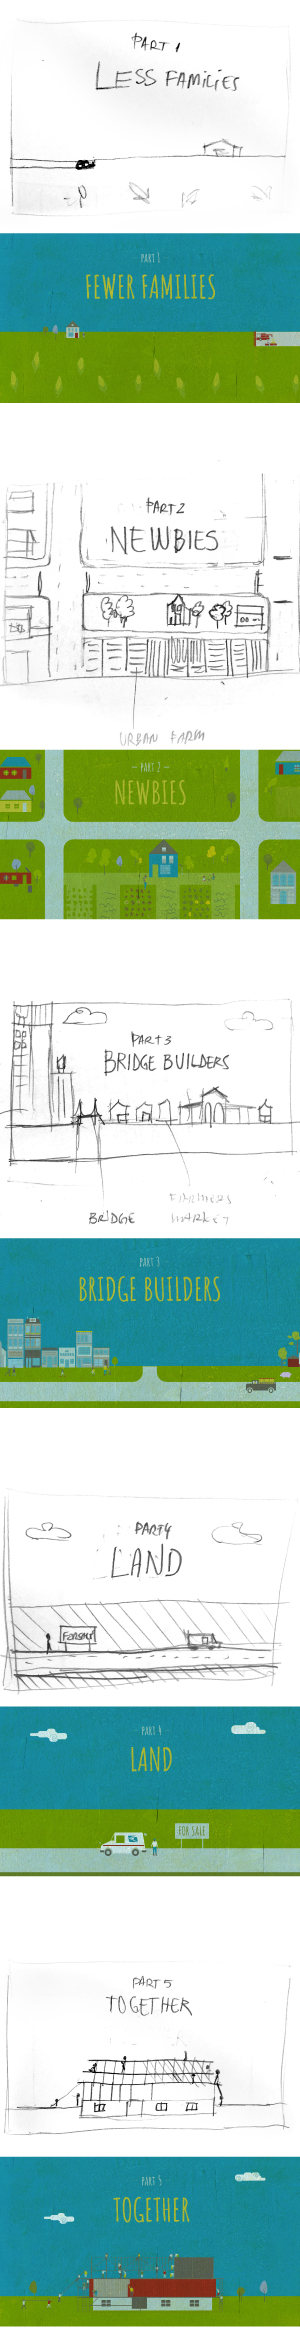 PART 1
LESS FAMILIES
PART 1
FEWER FAMILIES
PART 2
NEWBIES
URBAN FARM
- PART 2 -
NEWBIES
PART 3
BRIDGE BUILDERS
FARMERS
BRIDGE MARKET
PART 3
BRIDGE BUILDERS
PART 4
LAND
FORSALE
PART 4
LAND
FOR SALE
PART 5
TOGETHER
PART 5
TOGETHER